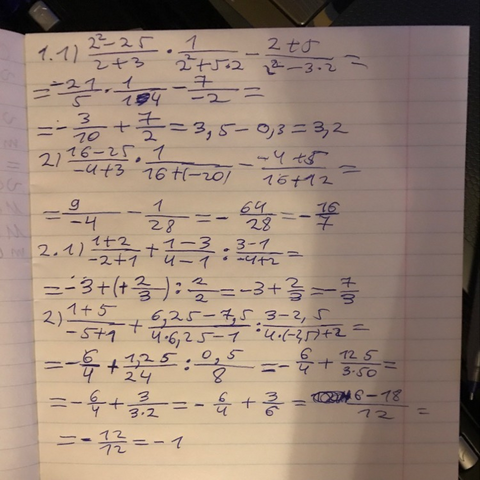 1.1) (2²-25)/(2+3) · 1/(2²+5·2) - (2+5)/(2²-3·2) =
= -21/5 · 1/14 - 7/-2 =
= -3/10 + 7/2 = 3,5-0,3=3,2
2) (16-25)/(-4+3) · 1/(16+(-20)) - (-4+5)/(16+12) =
= 9/-4 - 1/28 = - 64/28 = - 16/7
2.1) (1+2)/(-2+1) + (1-3)/(4-1) : (3-1)/(-4+2) =
= -3+(+2/3) : 2/2 = -3+2/3 = -7/3
2) (1+5)/(-5+1) + (6,25-7,5)/(4·6,25-1) : (3-2,5)/(4·(-2,5)+2) =
= -6/4 + 1,25/24 : 0,5/8 = -6/4 + 125/3.50 =
= -6/4 + 3/3·2 = -6/4 + 3/6 = 6-18/12 =
= -12/12 = -1